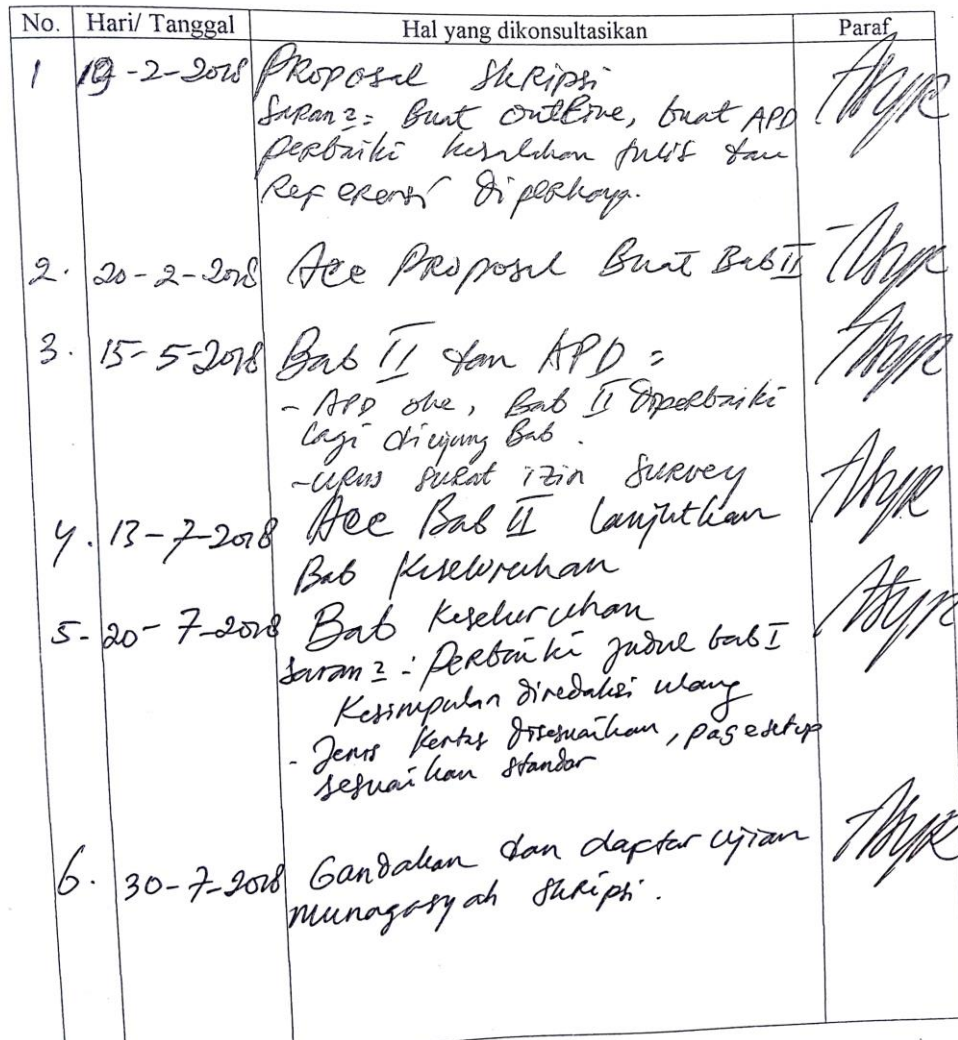 No. Hari/ Tanggal Hal yang dikonsultasikan Paraf
1 19-2-2018 Proposal Skripsi
Saran2: Buat outline, buat APD
perbaiki kesalahan tulis dan
Referensi diperkaya.
2. 20-2-2018 Acc Proposal Buat Bab II
3. 15-5-2018 Bab II dan APD :
- APD oke, Bab II diperbaiki
lagi diujung Bab.
- urus surat izin Survey
4. 13-7-2018 Acc Bab II lanjutkan
Bab Keseluruhan
5- 20-7-2018 Bab Keseluruhan
Saran2 : Perbaiki judul bab I
Kesimpulan diredaksi ulang
- Jenis Kertas disesuaikan, pagesetup
sesuaikan standar
6. 30-7-2018 Gandakan dan daftar ujian
munaqasyah Skripsi.